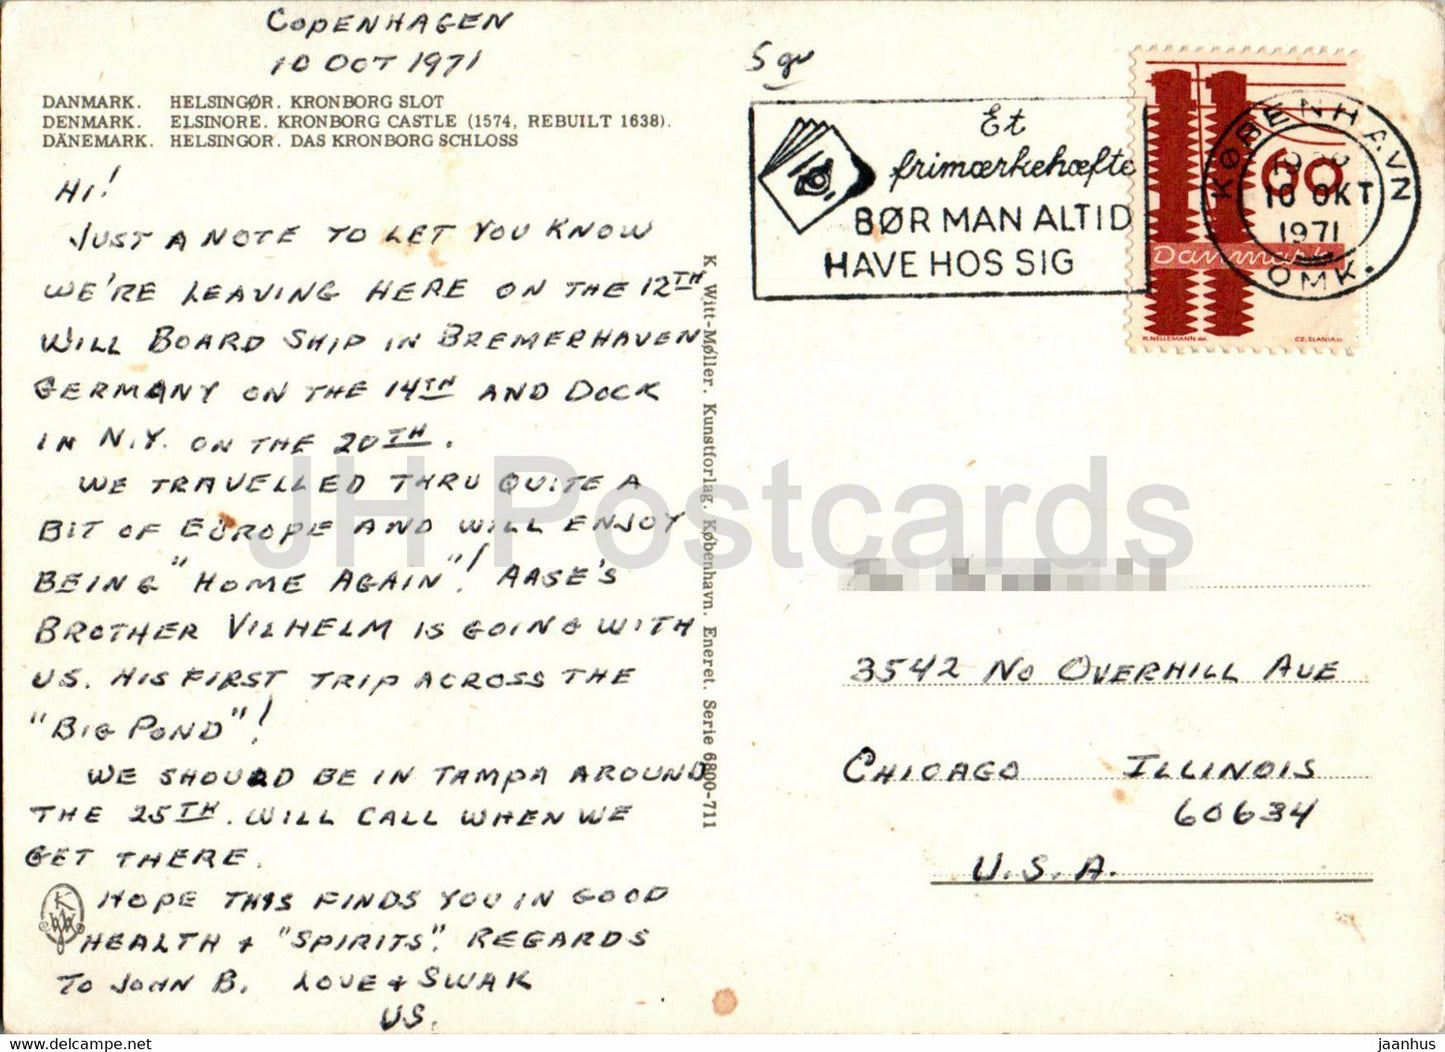 COPENHAGEN
10 OCT 1971
DANMARK. HELSINGØR. KRONBORG SLOT
DENMARK. ELSINORE. KRONBORG CASTLE (1574, REBUILT 1638).
DÄNEMARK. HELSINGOR. DAS KRONBORG SCHLOSS
HI!
JUST A NOTE TO LET YOU KNOW
WE'RE LEAVING HERE ON THE 12TH
WILL BOARD SHIP IN BREMERHAVEN
GERMANY ON THE 14TH AND DOCK
IN N.Y. ON THE 20TH.
WE TRAVELLED THRU QUITE A
BIT OF EUROPE AND WILL ENJOY
BEING "HOME AGAIN"! AASE'S
BROTHER VILHELM IS GOING WITH
US. HIS FIRST TRIP ACROSS THE
"BIG POND"!
WE SHOULD BE IN TAMPA AROUND
THE 25TH. WILL CALL WHEN WE
GET THERE.
HOPE THIS FINDS YOU IN GOOD
HEALTH + "SPIRITS". REGARDS
TO JOHN B. LOVE + SWAK
US.
K. Witt-Møller. Kunstforlag. København. Eneret. Serie 6800-711
Et
frimærkehæfte
BØR MAN ALTID
HAVE HOS SIG
60
Danmark
R.NELLEMANN del.
CZ.SLANIA sc.
KØBENHAVN
10 OKT
1971
OMK.
3542 NO OVERHILL AVE
CHICAGO ILLINOIS
60634
U.S.A.
JH Postcards
www.delcampe.net
jaanhus